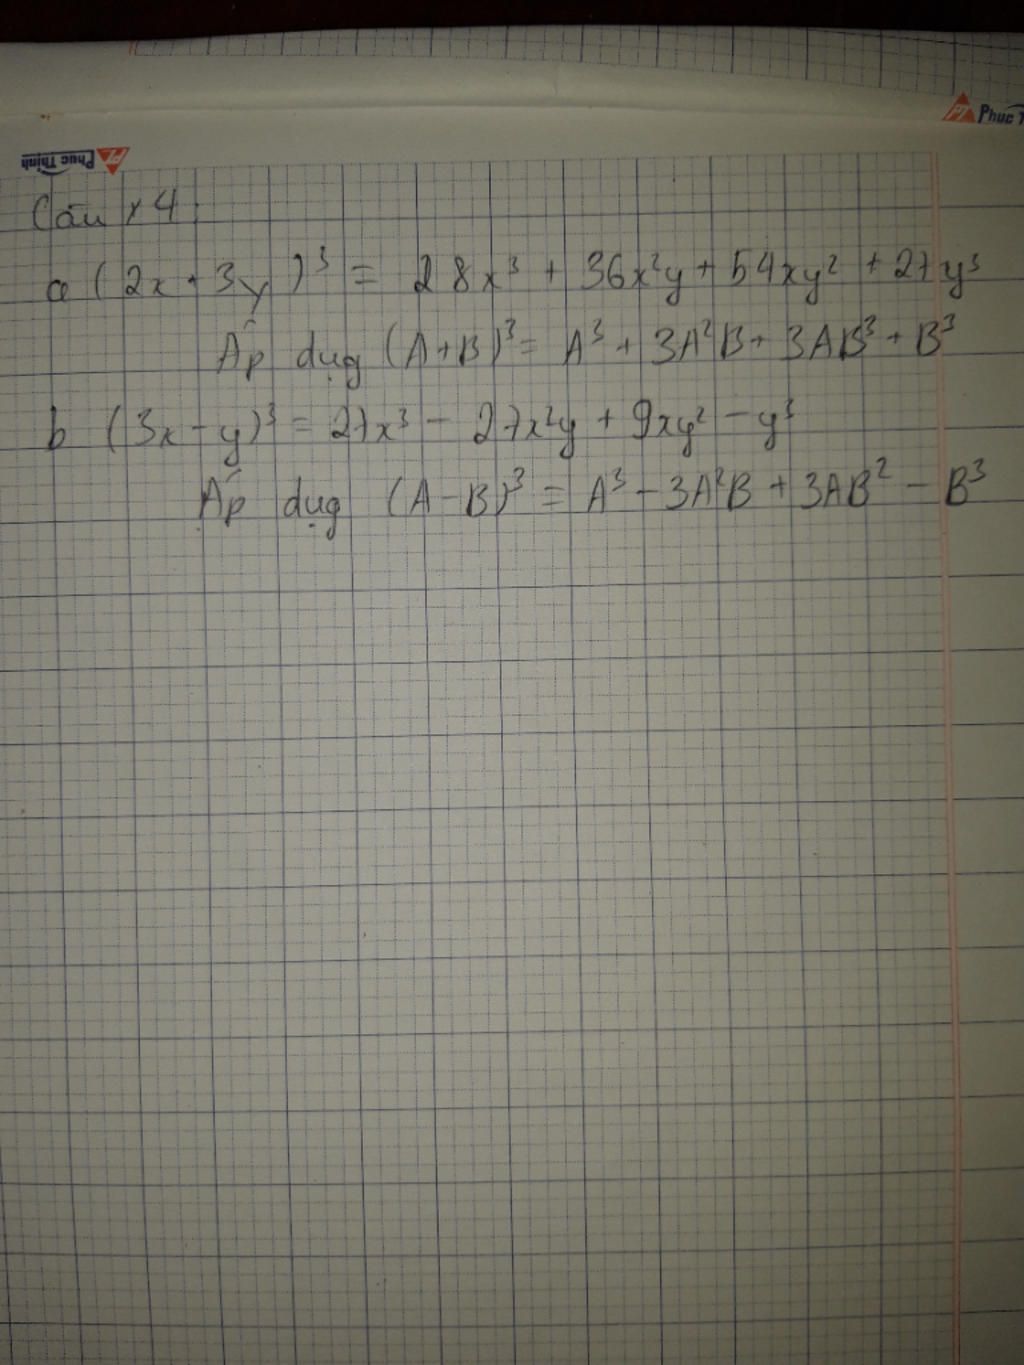 Phuc T
Phuc Thinh
Câu 4:
a (2x + 3y)³ = 28x³ + 36x²y + 54xy² + 27y³
Áp dụg (A+B)³ = A³ + 3A²B + 3AB³ + B³
b (3x - y)³ = 27x³ - 27x²y + 9xy² - y³
Áp dụg (A - B)³ = A³ - 3A²B + 3AB² - B³